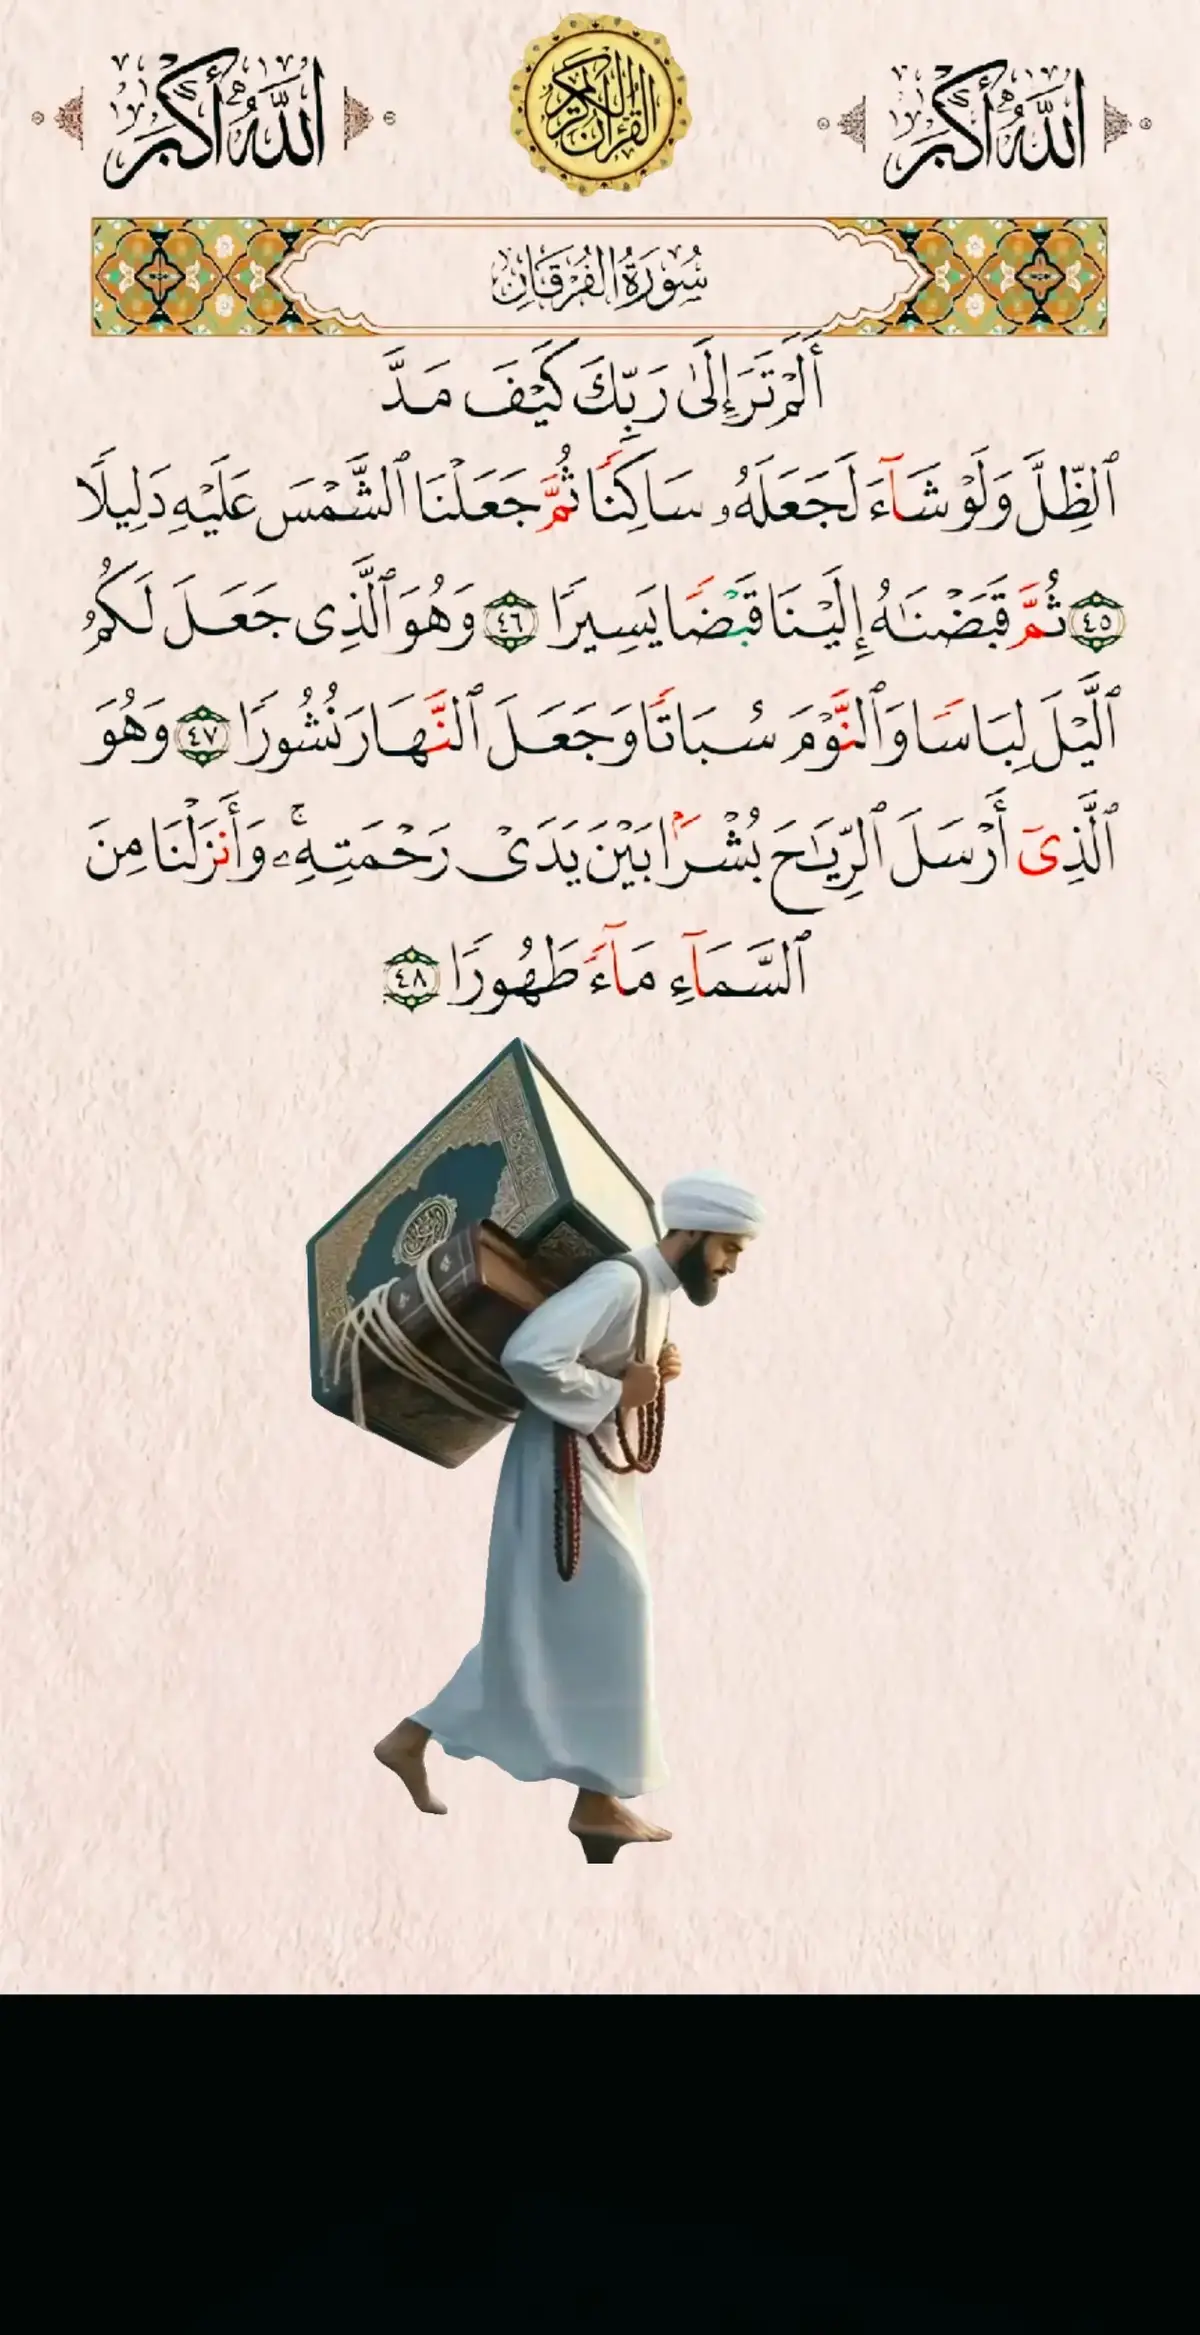 الله أكبر
القرآن الكريم
الله أكبر
سُورَةُ الفُرْقَانِ
أَلَمْ تَرَ إِلَىٰ رَبِّكَ كَيْفَ مَدَّ
ٱلظِّلَّ وَلَوْ شَآءَ لَجَعَلَهُۥ سَاكِنًا ثُمَّ جَعَلْنَا ٱلشَّمْسَ عَلَيْهِ دَلِيلًا
٤٥ ثُمَّ قَبَضْنَٰهُ إِلَيْنَا قَبْضًا يَسِيرًا ٤٦ وَهُوَ ٱلَّذِى جَعَلَ لَكُمُ
ٱلَّيْلَ لِبَاسًا وَٱلنَّوْمَ سُبَاتًا وَجَعَلَ ٱلنَّهَارَ نُشُورًا ٤٧ وَهُوَ
ٱلَّذِىٓ أَرْسَلَ ٱلرِّيَٰحَ بُشْرًۢا بَيْنَ يَدَىْ رَحْمَتِهِۦۚ وَأَنزَلْنَا مِنَ
ٱلسَّمَآءِ مَآءً طَهُورًا ٤٨